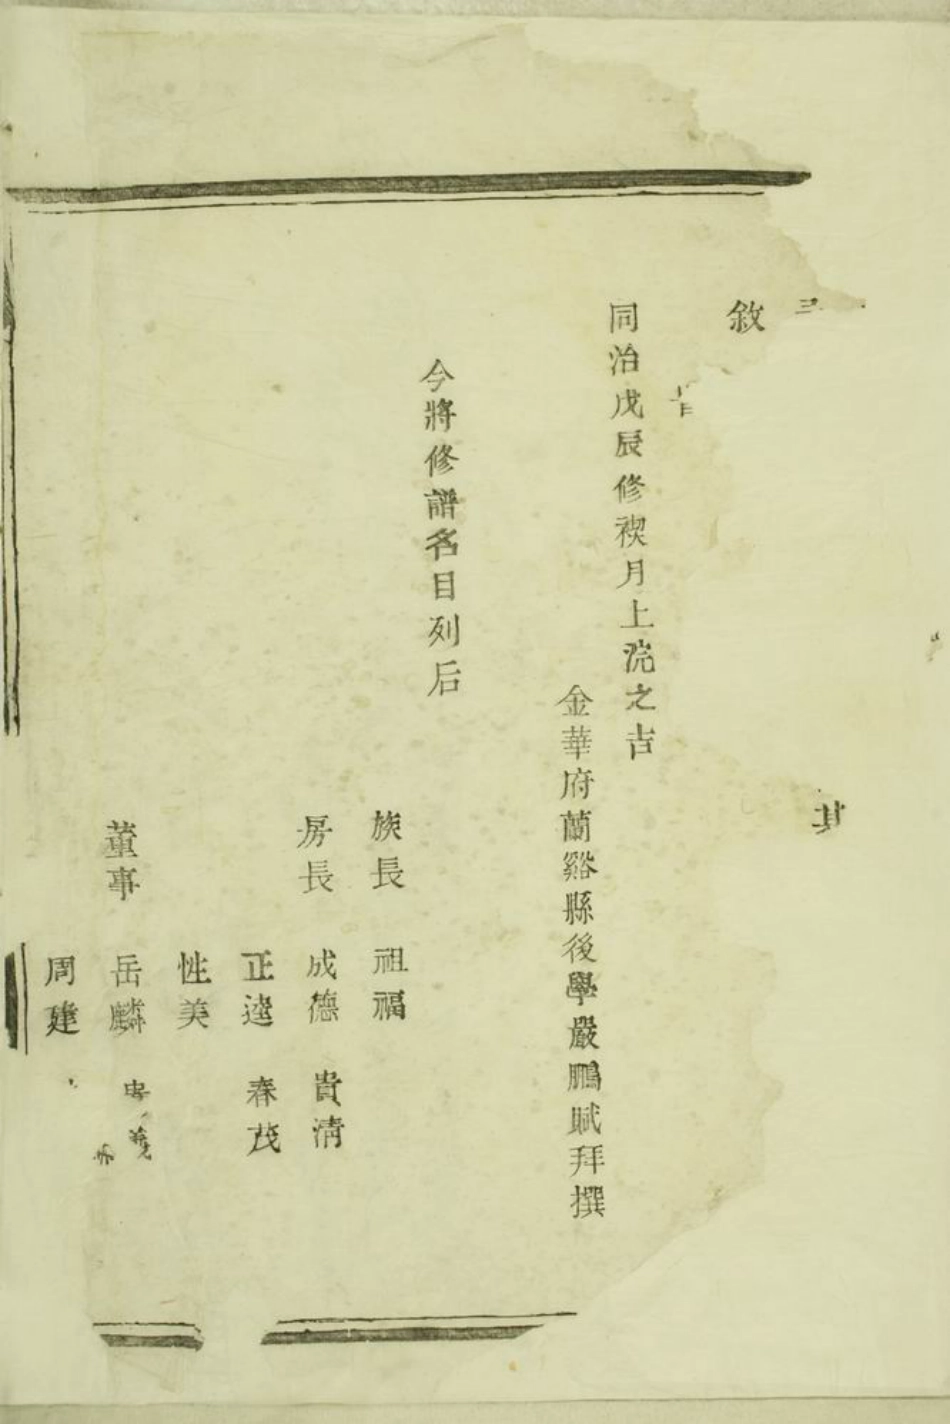 其
敘
同治戊辰修禊月上浣之吉
金華府蘭谿縣後學嚴鵬賦拜撰
今將修譜名目列后
族長 祖福
房長 成德 貴清
正逵 春茂
性美
董事 岳麟
周建